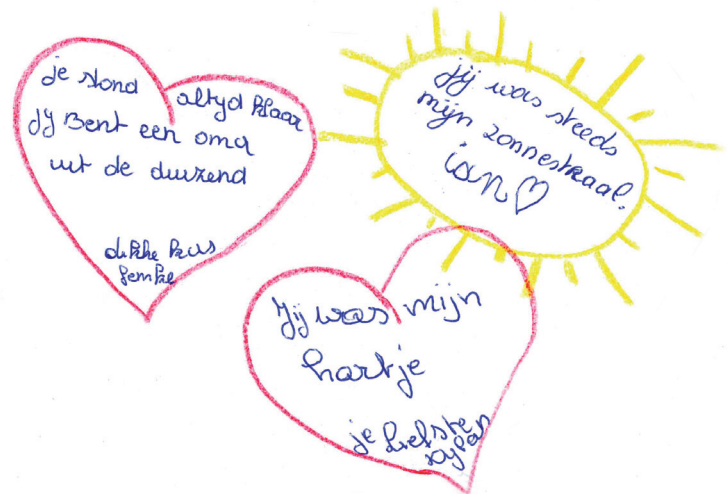 je stond altyd klaar
Jij Bent een oma
uit de duizend
dikke kus
Femke
jij was steeds
mijn zonnestraal.
ian♡
Jij was mijn
hartje
je liefste